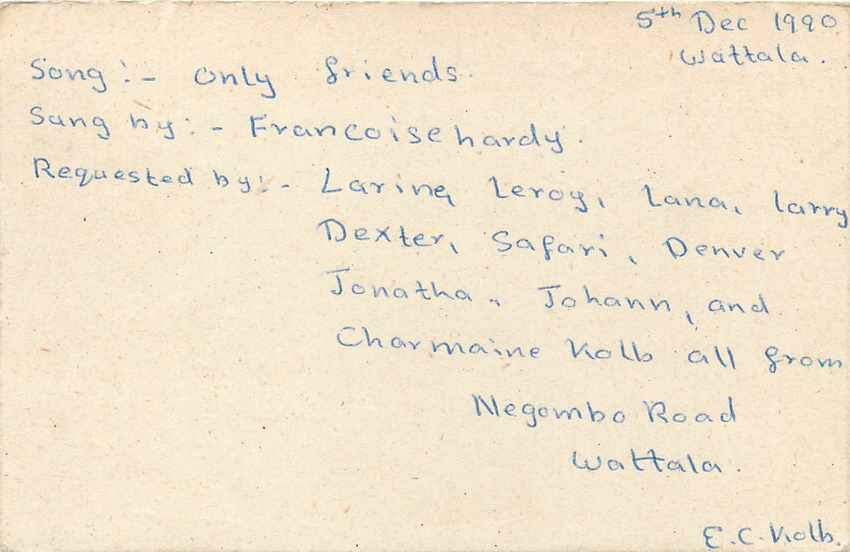 5th Dec 1990
Wattala.
Song :- Only friends.
Sung by :- Francoise hardy.
Requested by :- Larine, Leroy, Lana, Larry
Dexter, Safari, Denver
Jonatha, Johann, and
Charmaine Kolb all from
Negombo Road
Wattala.
E.C. Kolb.